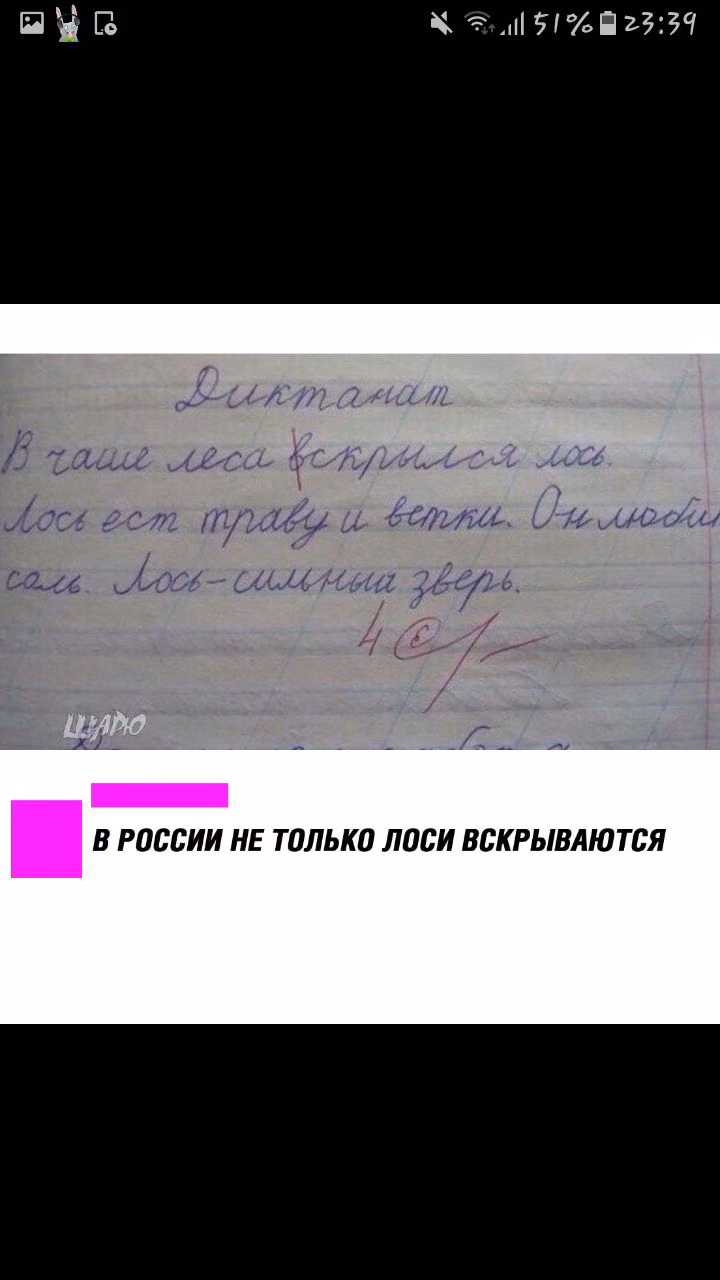 51% 23:39
Диктанат
В чаше леса вскрылся лось.
Лось ест траву и ветки. Он любит
соль. Лось-сильный зверь.
4
ЩАДЮ
В РОССИИ НЕ ТОЛЬКО ЛОСИ ВСКРЫВАЮТСЯ